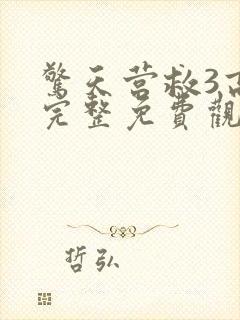 驚天营救3高
完整免費觀
哲弘